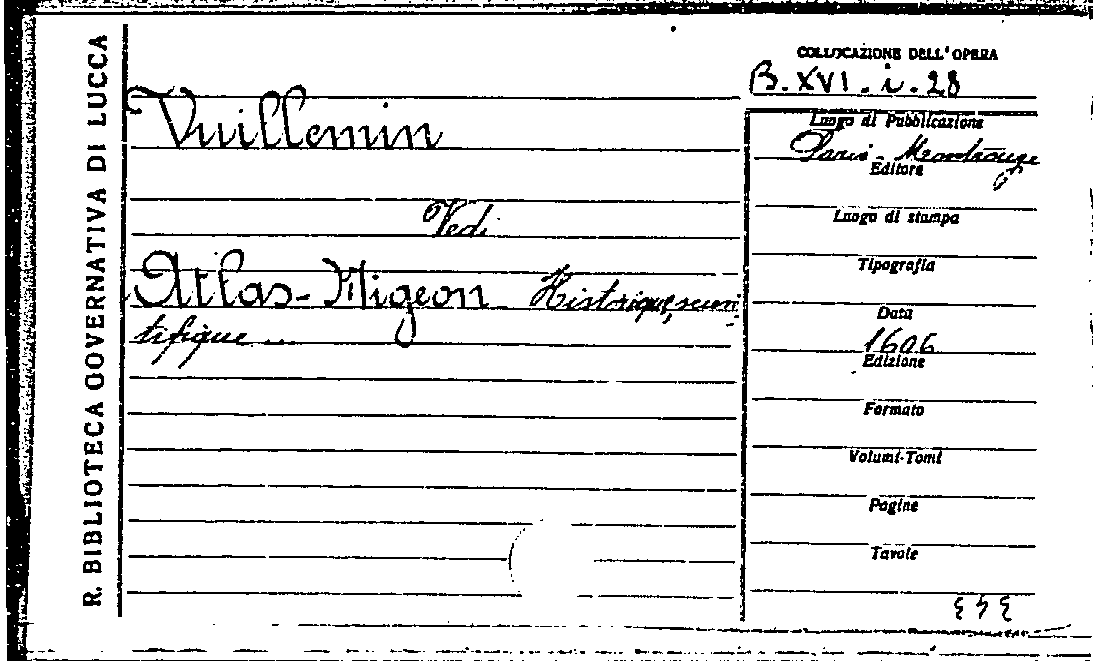 R. BIBLIOTECA GOVERNATIVA DI LUCCA
COLLOCAZIONE DELL'OPERA
B. XVI. i. 28
Vuillemin
Vedi
Atlas-Migeon Histrique, scien
tifique ...
Luogo di Pubblicazione
Paris - Montrouge
Editore
Luogo di stampa
Tipografia
Data
1606
Edizione
Formato
Volumi-Tomi
Pagine
Tavole